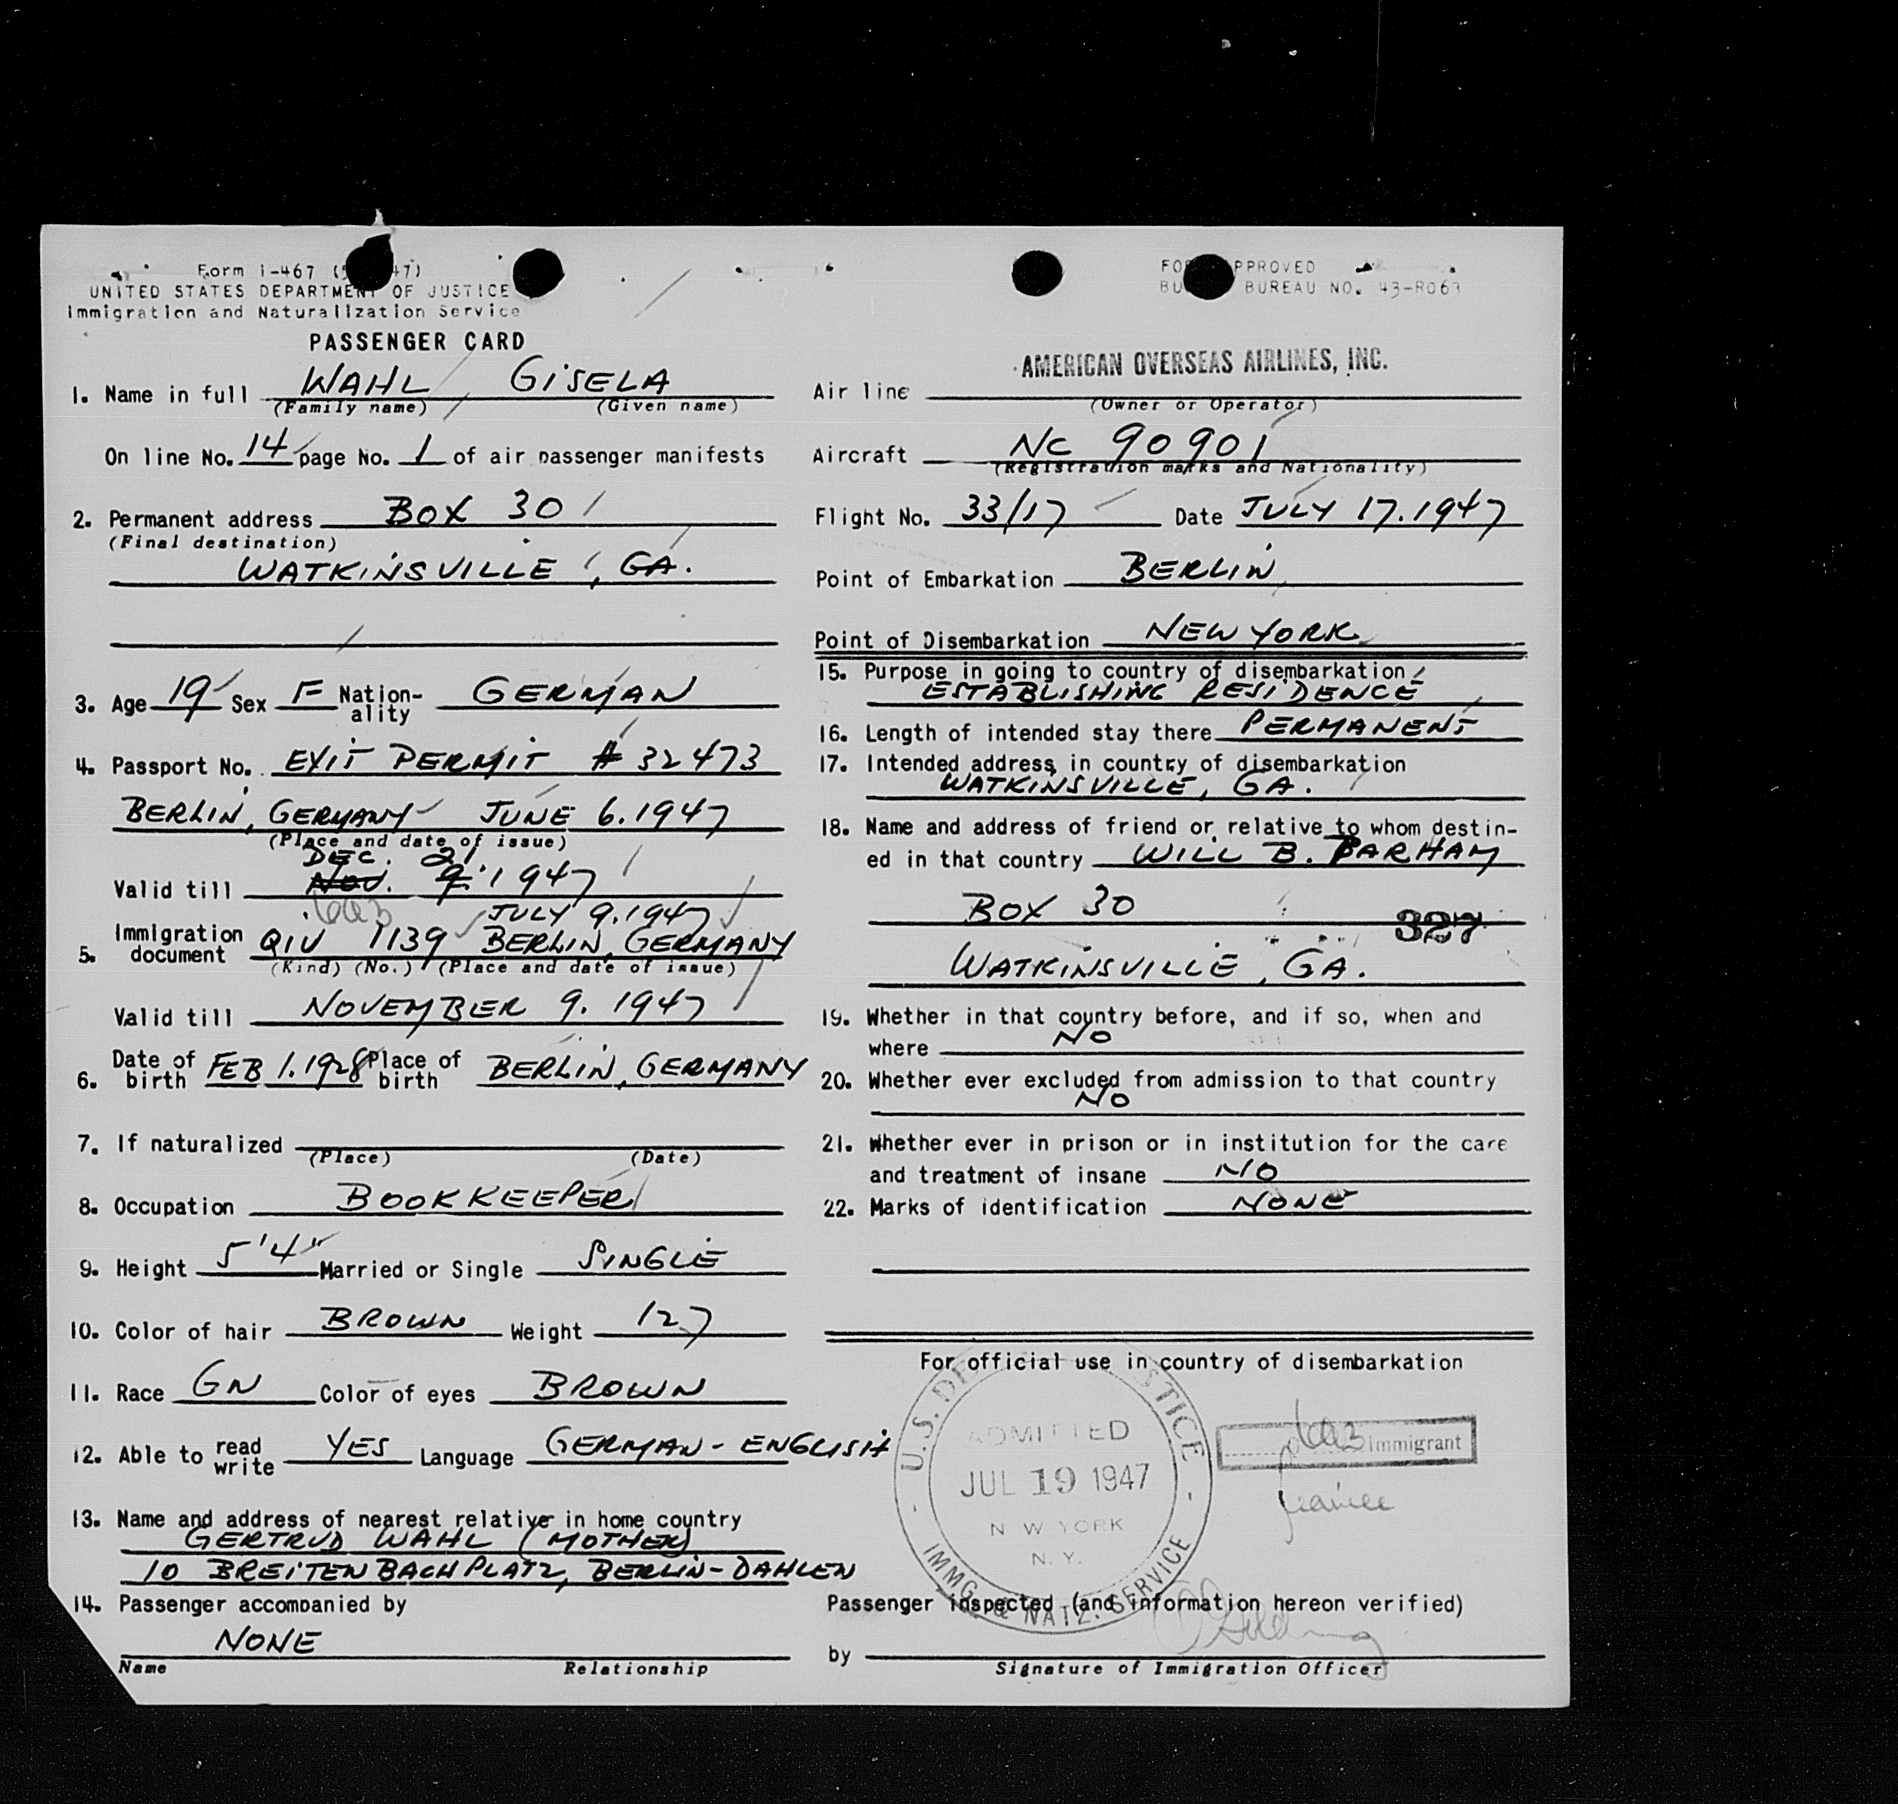 Form I-467 ( 47)
UNITED STATES DEPARTMENT OF JUSTICE
Immigration and Naturalization Service
PASSENGER CARD
1. Name in full WAHL, GISELA
(Family name) (Given name)
On line No. 14 page No. 1 of air passenger manifests
2. Permanent address BOX 30
(Final destination)
WATKINSVILLE, GA.
3. Age 19 Sex F Nation-ality GERMAN
4. Passport No. EXIT PERMIT # 32473
BERLIN, GERMANY JUNE 6. 1947
(Place and date of issue)
DEC. 21
Valid till NOV. 9. 1947
JULY 9. 1947
5. Immigration document QIV 1139 BERLIN, GERMANY
(Kind) (No.) (Place and date of issue)
Valid till NOVEMBER 9. 1947
6. Date of birth FEB 1. 1928 Place of birth BERLIN, GERMANY
7. If naturalized
(Place) (Date)
8. Occupation BOOKKEEPER
9. Height 5'4" Married or Single SINGLE
10. Color of hair BROWN Weight 127
11. Race GN Color of eyes BROWN
12. Able to read write YES Language GERMAN - ENGLISH
13. Name and address of nearest relative in home country
GERTRUD WAHL (MOTHER)
10 BREITENBACHPLATZ, BERLIN-DAHLEN
14. Passenger accompanied by
NONE
Name Relationship
FO PPROVED
BU BUREAU NO. 43-R063
AMERICAN OVERSEAS AIRLINES, INC.
Air line
(Owner or Operator)
Aircraft NC 90901
(Registration marks and Nationality)
Flight No. 33/17 Date JULY 17. 1947
Point of Embarkation BERLIN
Point of Disembarkation NEW YORK
15. Purpose in going to country of disembarkation
ESTABLISHING RESIDENCE
16. Length of intended stay there PERMANENT
17. Intended address in country of disembarkation
WATKINSVILLE, GA.
18. Name and address of friend or relative to whom destin-
ed in that country WILL B. PARHAM
BOX 30
327
WATKINSVILLE, GA.
19. Whether in that country before, and if so, when and
where NO
20. Whether ever excluded from admission to that country
NO
21. Whether ever in prison or in institution for the care
and treatment of insane NO
22. Marks of identification NONE
For official use in country of disembarkation
U.S. DE STICE
ADMITTED
JUL 19 1947
N W YORK
N. Y.
IMMG. & NATZ. SERVICE
Immigrant
Passenger inspected (and information hereon verified)
by
Signature of Immigration Officer